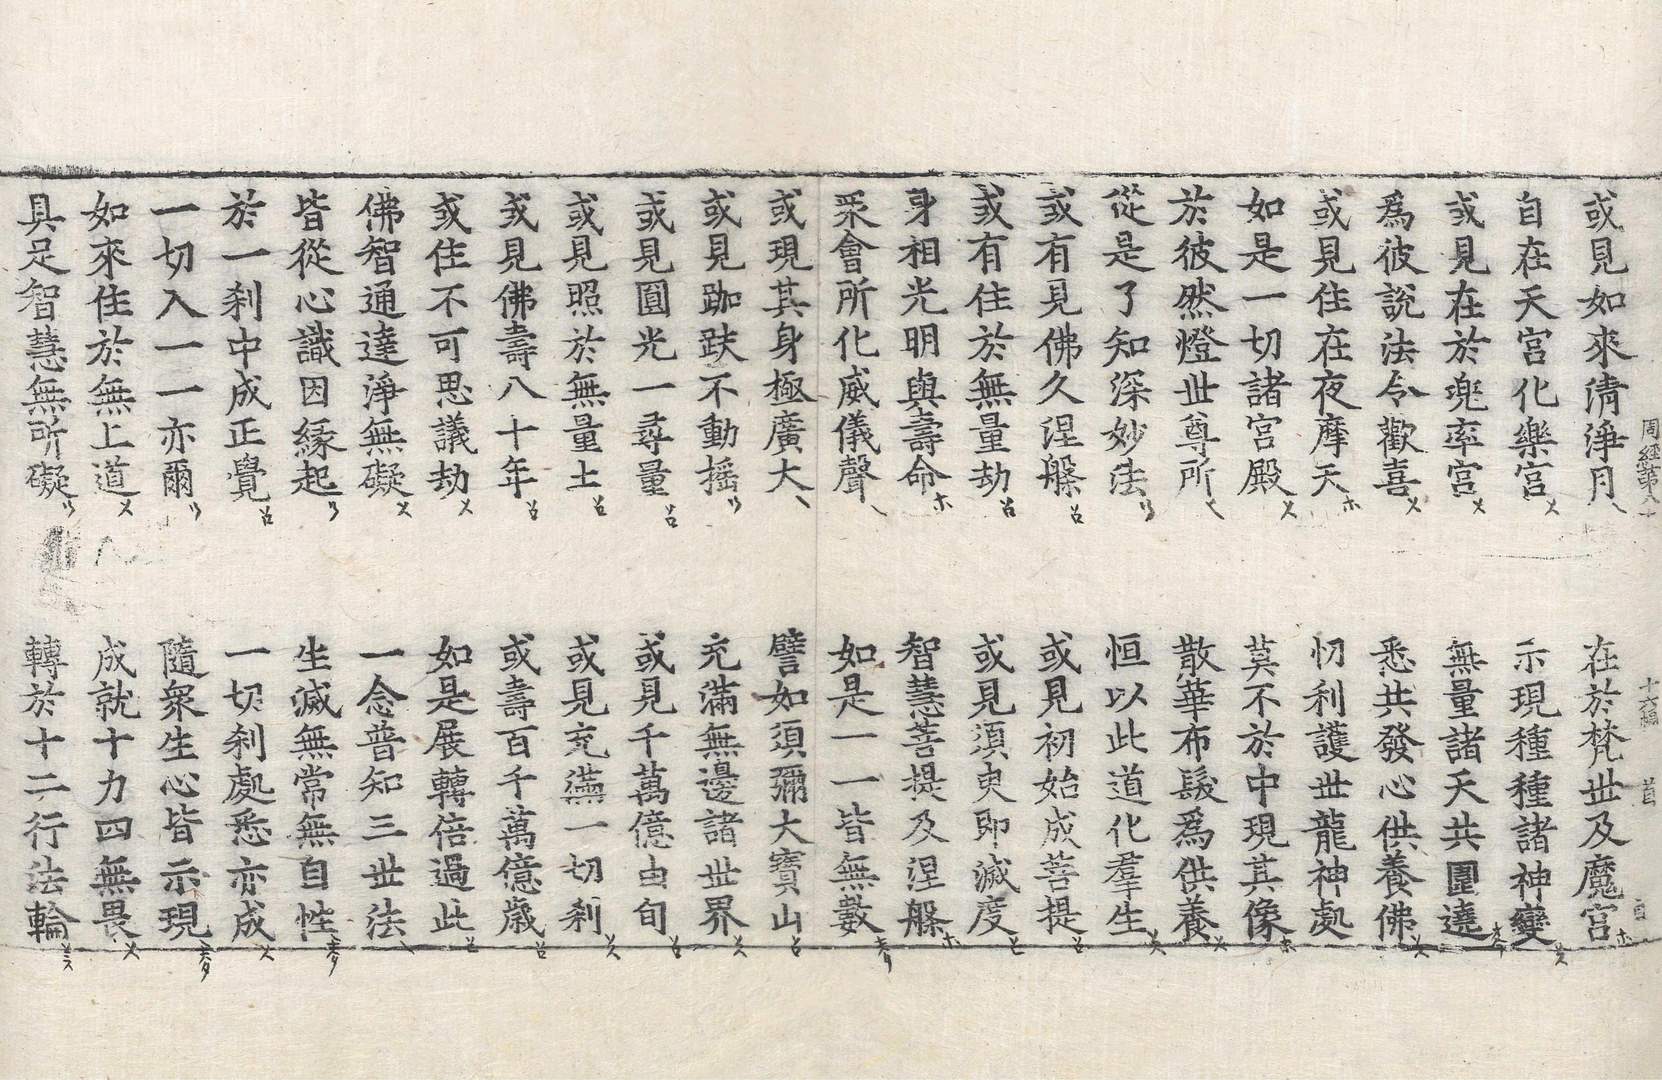 周經第八十
或見如來清淨月 在於梵世及魔宮
自在天宮化樂宮 示現種種諸神變
或見在於兜率宮 無量諸天共圍遶
爲彼說法令歡喜 悉共發心供養佛
或見住在夜摩天 忉利護世龍神處
如是一切諸宮殿 莫不於中現其像
於彼然燈世尊所 散華布髮爲供養
從是了知深妙法 恒以此道化羣生
或有見佛久涅槃 或見初始成菩提
或有住於無量劫 或見須臾即滅度
身相光明與壽命 智慧菩提及涅槃
衆會所化威儀聲 如是一一皆無數
或現其身極廣大 譬如須彌大寶山
或見跏趺不動搖 充滿無邊諸世界
或見圓光一尋量 或見千萬億由旬
或見照於無量土 或見充滿一切刹
或見佛壽八十年 或壽百千萬億歲
或住不可思議劫 如是展轉倍過此
佛智通達淨無礙 一念普知三世法
皆從心識因緣起 生滅無常無自性
於一刹中成正覺 一切刹處悉亦成
一切入一一亦爾 隨衆生心皆示現
如來住於無上道 成就十力四無畏
具足智慧無所礙 轉於十二行法輪